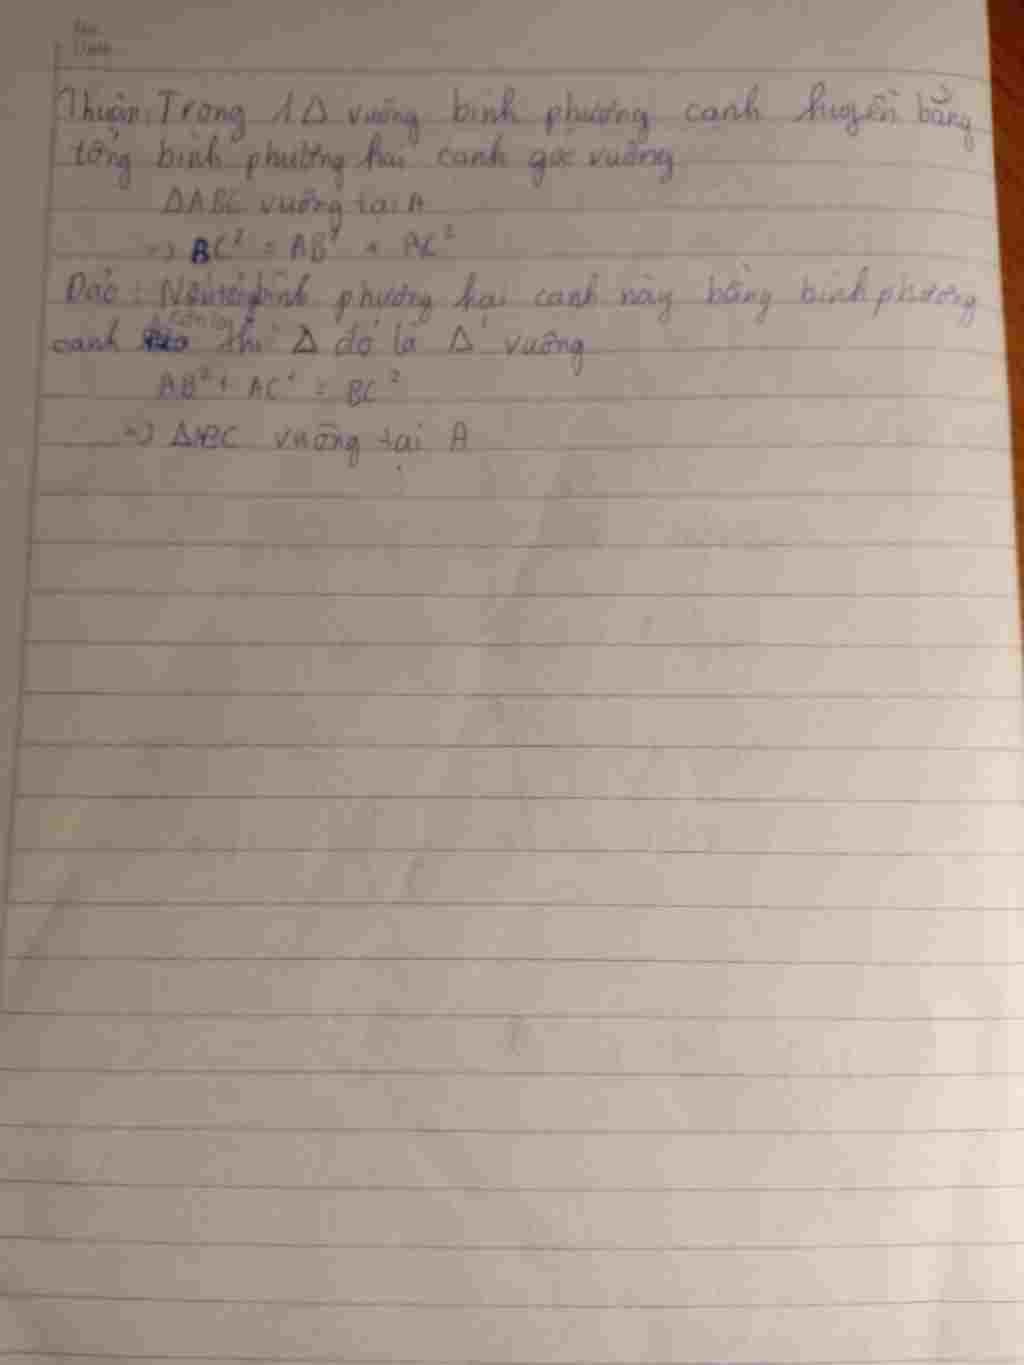 Thuận: Trong 1 Δ vuông bình phương cạnh huyền bằng
tổng bình phương hai cạnh góc vuông
ΔABC vuông tại A
=> BC² = AB² + AC²
Đảo: Nếu tổng bình phương hai cạnh này bằng bình phương
cạnh còn lại thì Δ đó là Δ vuông
AB² + AC² = BC²
=> ΔABC vuông tại A